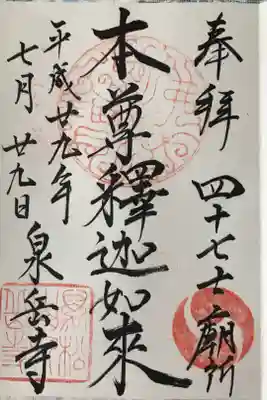 奉拝 四十七士廟所
本尊釋迦如來
平成廿九年
七月廿九日
泉岳寺